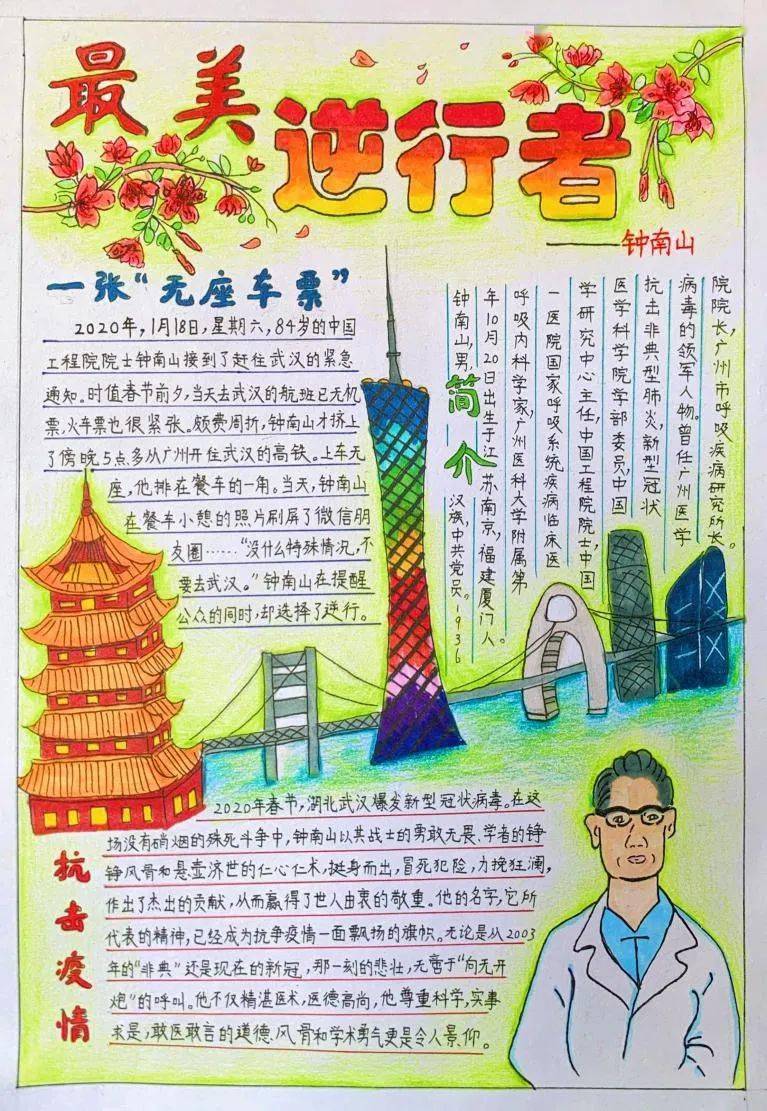 最美
逆行者
——钟南山
一张“无座车票”
2020年,1月18日,星期六,84岁的中国
工程院院士钟南山接到了赶往武汉的紧急
通知。时值春节前夕,当天去武汉的航班已无机
票,火车票也很紧张。颇费周折,钟南山才挤上
了傍晚5点多从广州开往武汉的高铁。上车无
座,他排在餐车的一角。当天,钟南山
在餐车小憩的照片刷屏了微信朋
友圈……“没什么特殊情况,不
要去武汉。”钟南山在提醒
公众的同时,却选择了逆行。
简介
钟南山,男,汉族,中共党员。1936
年10月20日出生于江苏南京,福建厦门人。
呼吸内科学家,广州医科大学附属第
一医院国家呼吸系统疾病临床医
学研究中心主任,中国工程院院士,中国
医学科学院学部委员,中国
抗击非典型肺炎,新型冠状
病毒的领军人物。曾任广州医学
院院长,广州市呼吸疾病研究所所长。
抗击疫情
2020年春节,湖北武汉爆发新型冠状病毒。在这
场没有硝烟的殊死斗争中,钟南山以其战士的勇敢无畏、学者的铮
铮风骨和悬壶济世的仁心仁术,挺身而出,冒死犯险,力挽狂澜,
作出了杰出的贡献,从而赢得了世人由衷的敬重。他的名字,它所
代表的精神,已经成为抗争疫情一面飘扬的旗帜。无论是从2003
年的“非典”还是现在的新冠,那一刻的悲壮,无啻于“向无开
炮”的呼叫。他不仅精湛医术,医德高尚,他尊重科学,实事
求是,敢医敢言的道德、风骨和学术勇气更是令人景仰。